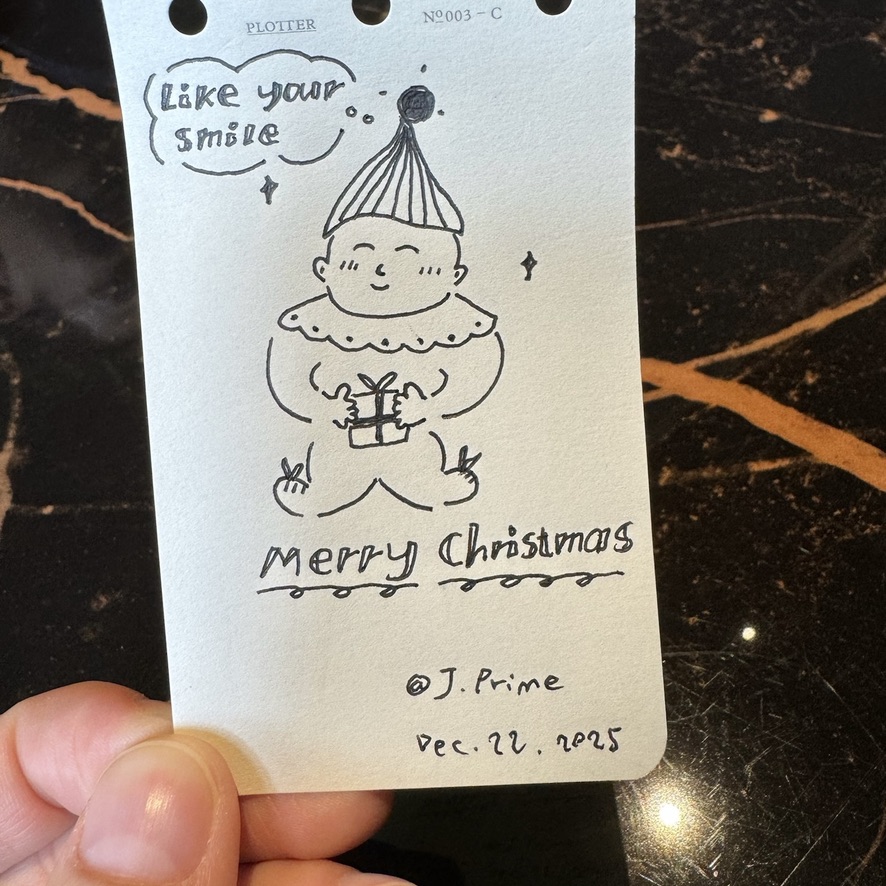 PLOTTER
Nº003 - C
Like your
smile
Merry Christmas
@J.Prime
Dec. 22. 2025